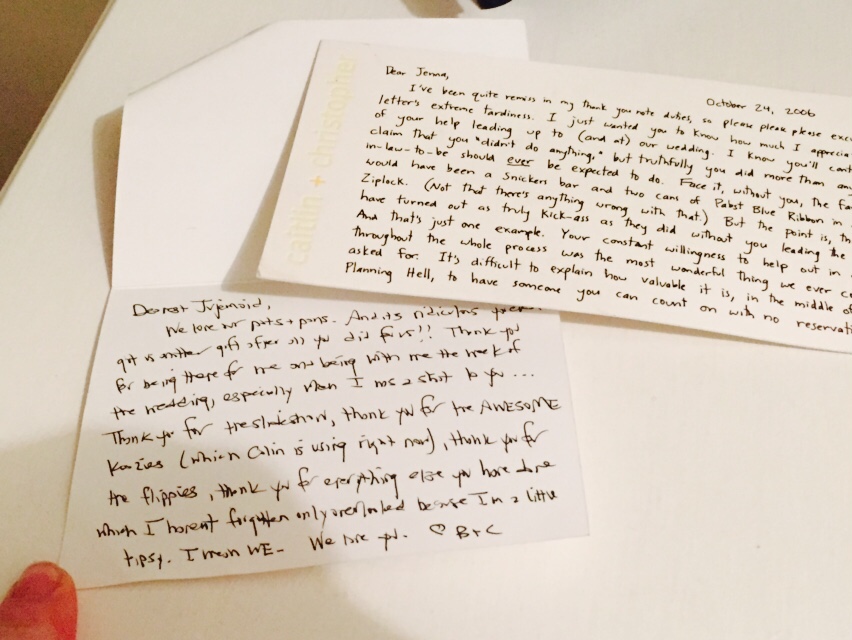 caitlin + christopher
October 24, 2006
Dear Jenna,
I've been quite remiss in my thank you note duties, so please please please
letter's extreme tardiness. I just wanted you to know how much I
of your help leading up to (and at) our wedding. I know you'll
claim that you "didn't do anything," but truthfully you did more than
in-law-to-be should ever be expected to do. Face it, without you, the
would have been a Snickers bar and two cans of Pabst Blue Ribbon in
Ziplock. (Not that there's anything wrong with that.) But the point is,
have turned out as truly kick-ass as they did without you leading the
And that's just one example. Your constant willingness to help out in
throughout the whole process was the most wonderful thing we ever
asked for. It's difficult to explain how valuable it is, in the middle of
Planning Hell, to have someone you can count on with no
Dearest
We love our pots + pans. And its ridiculous
got us another gift after all you did for us!! Thank you
for being there for me and being with me the week of
the wedding, especially when I was a shit to you...
Thank you for the slideshow, thank you for the AWESOME
Koozies (which Colin is using right now), thank you for
the flippies, thank you for everything else you have done
which I havent forgotten only overlooked because I'm a little
tipsy. I mean WE- We love you. ♡ B+C